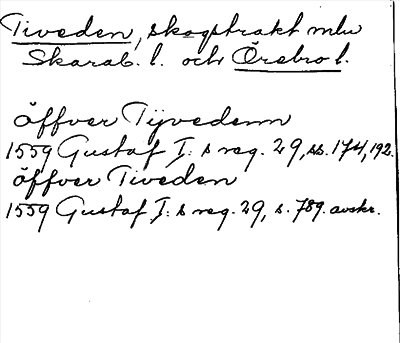 Tiveden, skogstrakt mlw
Skarab. l. och Örebro l.
öffver Tijvedenn
1559 Gustaf I: s reg. 29, ss. 174, 192.
öffver Tiveden
1559 Gustaf I: s reg. 29, s. 789. avskr.